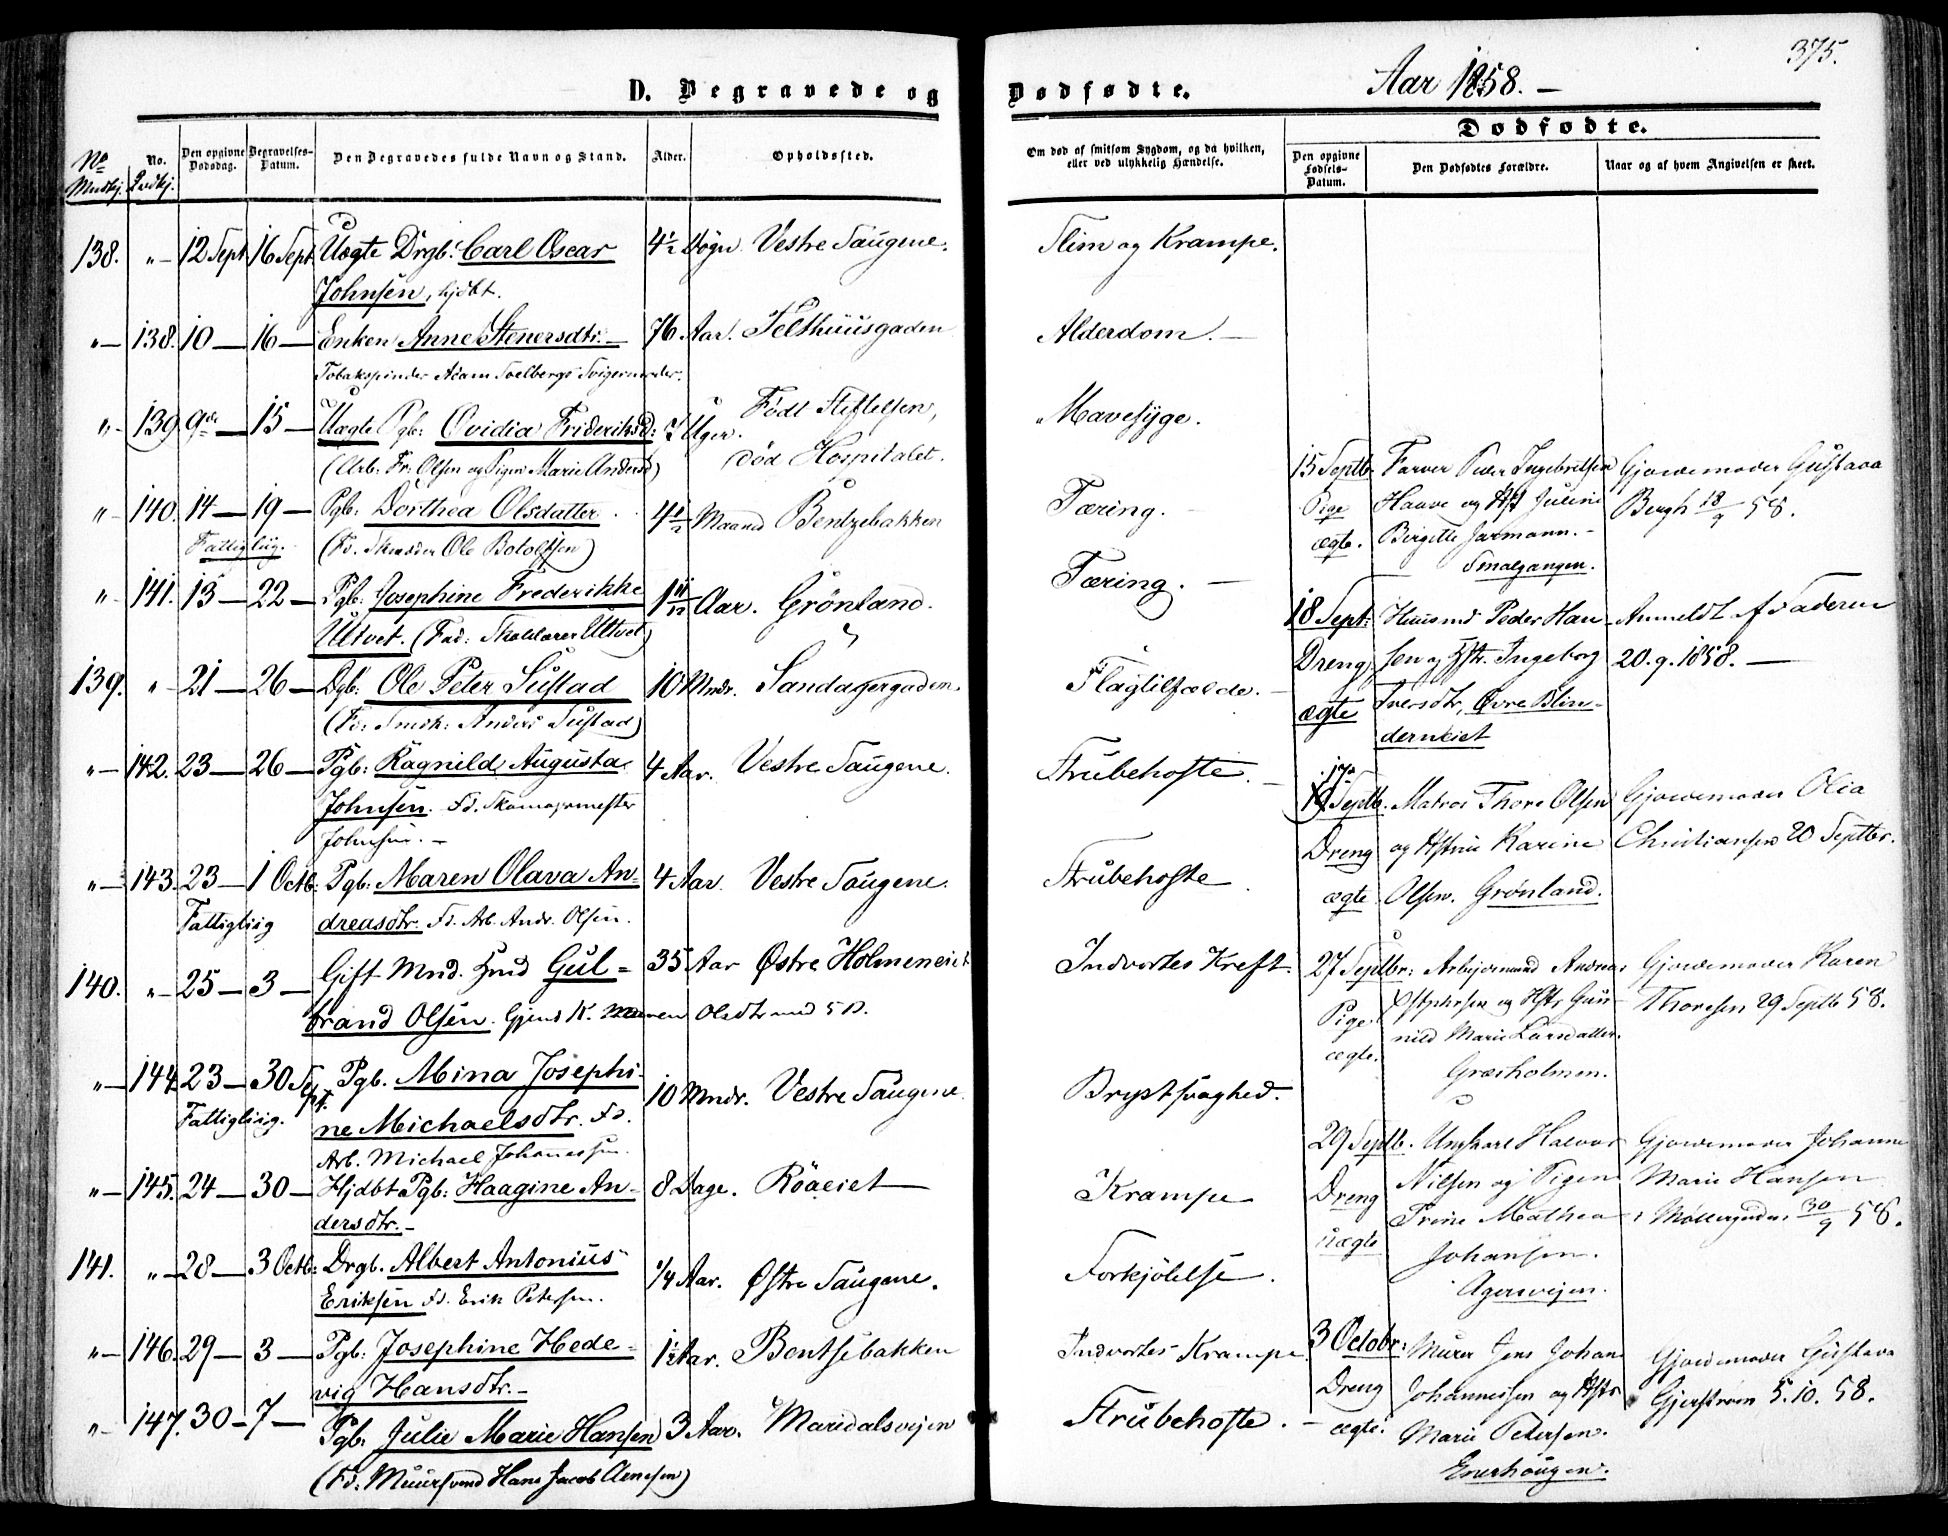 375.
D. Begravede og Dødfødte. Aar 1858. —
No Mandkj.
No. Qvdkj.
Den opgivne Dødsdag.
Begravelses-Datum.
Den Begravedes fulde Navn og Stand.
Alder.
Opholdssted.
Om død af smitsom Sygdom, og da hvilken, eller ved ulykkelig Hændelse.
Dødfødte.
Den opgivne Fødsels-Datum.
Den Dødfødtes Forældre.
Naar og af hvem Angivelsen er skeet.
138. „— 12 Sept 16 Sept Uægte Drgb: Carl Oscar 4½ Døgn. Vestre Saugene. Slim og Krampe.
Johnsen, hjdbt.
„— 138. 10 — 16 — Enken Anne Stenersdtr. — 76 Aar. Telthuusgaden Alderdom. —
Tobakspinder Adam Soelbergs Svigermoder.
„— 139. 9de — 15 — Uægte Pgb: Ovidia Frideriksd: Uger. Født Stiftelsen, Mavesyge.
(Arb. Fr: Olsen og Pigen Marie Andersd) Død Hospitalet.
„— 140. 14 — 19 — Pgb: Dorthea Olsdatter 4½ Maaned Bentzebakken Tæring. —
Fattigliig. (Fd. Ole Botolfsen)
„— 141. 13 — 22 — Pgb: Josephine Frederikke 1 11/12 Aar. Grönland. Tæring. —
Ultvet. (Fad: Ultvet)
139. „ 21 — 26 — Dgb: Ole Peter Sustad 10 Mndr. Sandagergaden. Slagtilfælde. —
(Fd: Smedk: Anders Sustad)
„— 142. 23 — 26 — Pgb: Ragnild Augusta 4 Aar. Vestre Saugene. Strubehoste. —
Johnsen. Fd. Skomagermester
Johnsen. —
„— 143. 23 — 1 Octb: Pgb: Maren Olava An- 4 Aar. Vestre Saugene. Strubehoste
Fattigliig dreasdtr. Fd. Arb. Andr. Olsen.
140. „— 25 — 3 — Gift Mnd. Hmd Gul= 35 Aar Østre Holmeneiet Indvortes Kreft.
brand Olsen. Gjenl. K. Maren Olsdtr med 5 B.
„— 144. 23 — 30 Sept. Pgb. Mina Josephi- 10 Mndr. Vestre Saugene Brystsvaghed.
Fattigliig. ne Michaelsdtr. Fd.
Arb. Michael Johannessen.
„— 145. 24 — 30 — Hjdbt Pgb: Haagine An- 8 Dage. Röaeiet Krampe
dersdtr. —
141. „— 28 — 3 Octb: Drgb. Albert Antonius 1/4 Aar. Østre Saugene. Forkjölelse.
Eriksen Fd. Erik Petersen.
„— 146. 29 — 3 — Pgb: Josephine Hede- 1½ Aar. Bentsebakken Indvortes Krampe
vig Hansdtr. —
„— 147. 30 — 7 — Pgb: Julie Marie Hansen 3 Aar. Maridalsveien Strubehoste. —
(Fd: Muursvend Hans Jacob Arnesen)
15 Septbr Farver Peder Ingebretsen Gjordemoder Gustava
Pige Hauve og Hst Juline Bergh 18/9 58.
ægte. Birgitte Jarmann. —
Smalgangen.
18 Sept: Huusmd Peder Han- Anmeldt af Faderen
Dreng sen og Hstr. Ingeborg 20. 9. 1858. —
ægte Iversdtr, Øvre Blin-
derneiet
17de Septb. Matros Thore Olsen Gjordemoder Olia
Dreng og Hstru Karine Christiansen 20 Septbr.
ægte Olsen. Grönland.
27 Septbr: Arbeidsmand Andreas Gjordemoder Karen
Pige og Hstr Gun- Thoresen 29 Septb 58.
ægte. nild Marie Larsdatter.
Græsholmen.
29 Septb. Ungkarl Halvor Gjordemoder Johanne
Dreng Nilsen og Pigen Marie Hansen
uægte Trine Mathea i Møllergaden 30/9 58.
Johansen.
Agersveien.
3 Octobr: Murer Jens Johan Gjordemoder Gustava
Dreng Johannessen og Hstr Gjerstrøm 5. 10. 58.
ægte. Marie Petersen.
Enerhaugen.